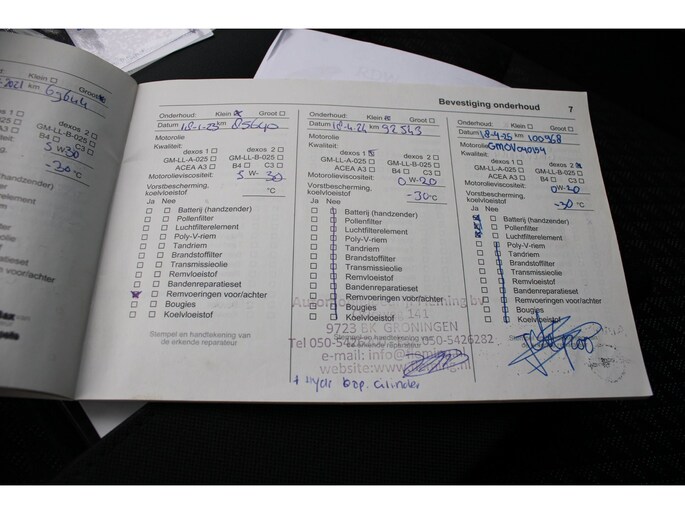 Klein □ Groot ☒
2021 km 69644
dexos 1 □ dexos 2 □
GM-LL-A-025 □ GM-LL-B-025 □
ACEA A3 □ B4 □ C3 □
5 W30
-30 °C
(handzender)
Bevestiging onderhoud 7
Onderhoud: Klein ☒ Groot □
Datum 18-1-23 km 85640
Motorolie
Kwaliteit:
dexos 1 □ dexos 2 □
GM-LL-A-025 □ GM-LL-B-025 □
ACEA A3 □ B4 □ C3 □
Motorolieviscositeit: 5 W- 30
Vorstbescherming, koelvloeistof °C
Ja Nee
□ □ Batterij (handzender)
□ □ Pollenfilter
□ □ Luchtfilterelement
□ □ Poly-V-riem
□ □ Tandriem
□ □ Brandstoffilter
□ □ Transmissieolie
□ □ Remvloeistof
□ □ Bandenreparatieset
☒ □ Remvoeringen voor/achter
□ □ Bougies
□ □ Koelvloeistof
Stempel en handtekening van
de erkende reparateur
Onderhoud: Klein ☒ Groot □
Datum 18-4-24 km 92543
Motorolie
Kwaliteit:
dexos 1 ☒ dexos 2 □
GM-LL-A-025 □ GM-LL-B-025 □
ACEA A3 □ B4 □ C3 □
Motorolieviscositeit: 0 W-20
Vorstbescherming, koelvloeistof -30 °C
Ja Nee
Batterij (handzender)
Pollenfilter
Luchtfilterelement
Poly-V-riem
Tandriem
Brandstoffilter
Transmissieolie
Remvloeistof
Bandenreparatieset
Remvoeringen voor/achter
Bougies
Koelvloeistof
141
9723 BK GRONINGEN
Tel 050-542 050-5426282
Stempel en handtekening van
de erkende reparateur
e-mail: info@
website:www.
Onderhoud: Klein □ Groot □
Datum 18-4-25 km 100968
Motorolie
Kwaliteit:
dexos 1 □ dexos 2 ☒
GM-LL-A-025 □ GM-LL-B-025 □
ACEA A3 □ B4 □ C3 □
Motorolieviscositeit: 0W-20
Vorstbescherming, koelvloeistof -30 °C
Ja Nee
Batterij (handzender)
Pollenfilter
Luchtfilterelement
Poly-V-riem
Tandriem
Brandstoffilter
Transmissieolie
Remvloeistof
Bandenreparatieset
Remvoeringen voor/achter
Bougies
Koelvloeistof
Stempel en handtekening van
de erkende reparateur